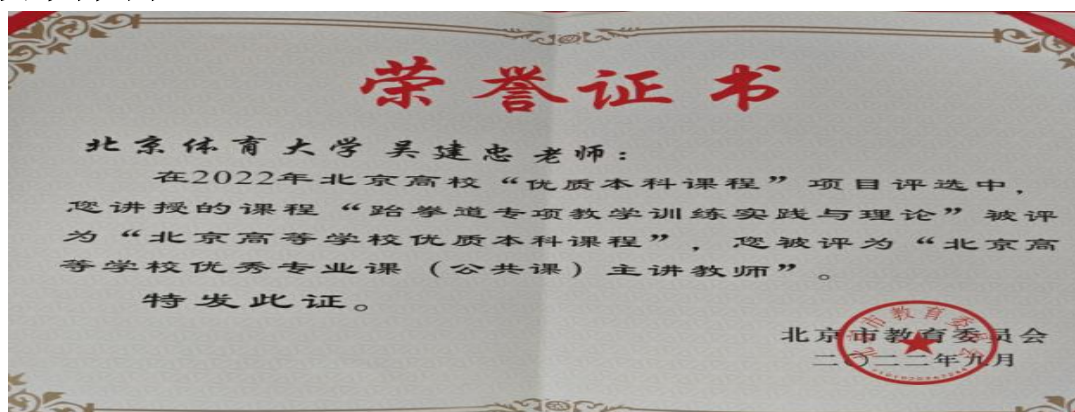 荣誉证书
北京体育大学吴建忠老师：
在2022年北京高校“优质本科课程”项目评选中，
您讲授的课程“跆拳道专项教学训练实践与理论”被评
为“北京高等学校优质本科课程”，您被评为“北京高
等学校优秀专业课（公共课）主讲教师”。
特发此证。
北京市教育委员会
二〇二二年九月